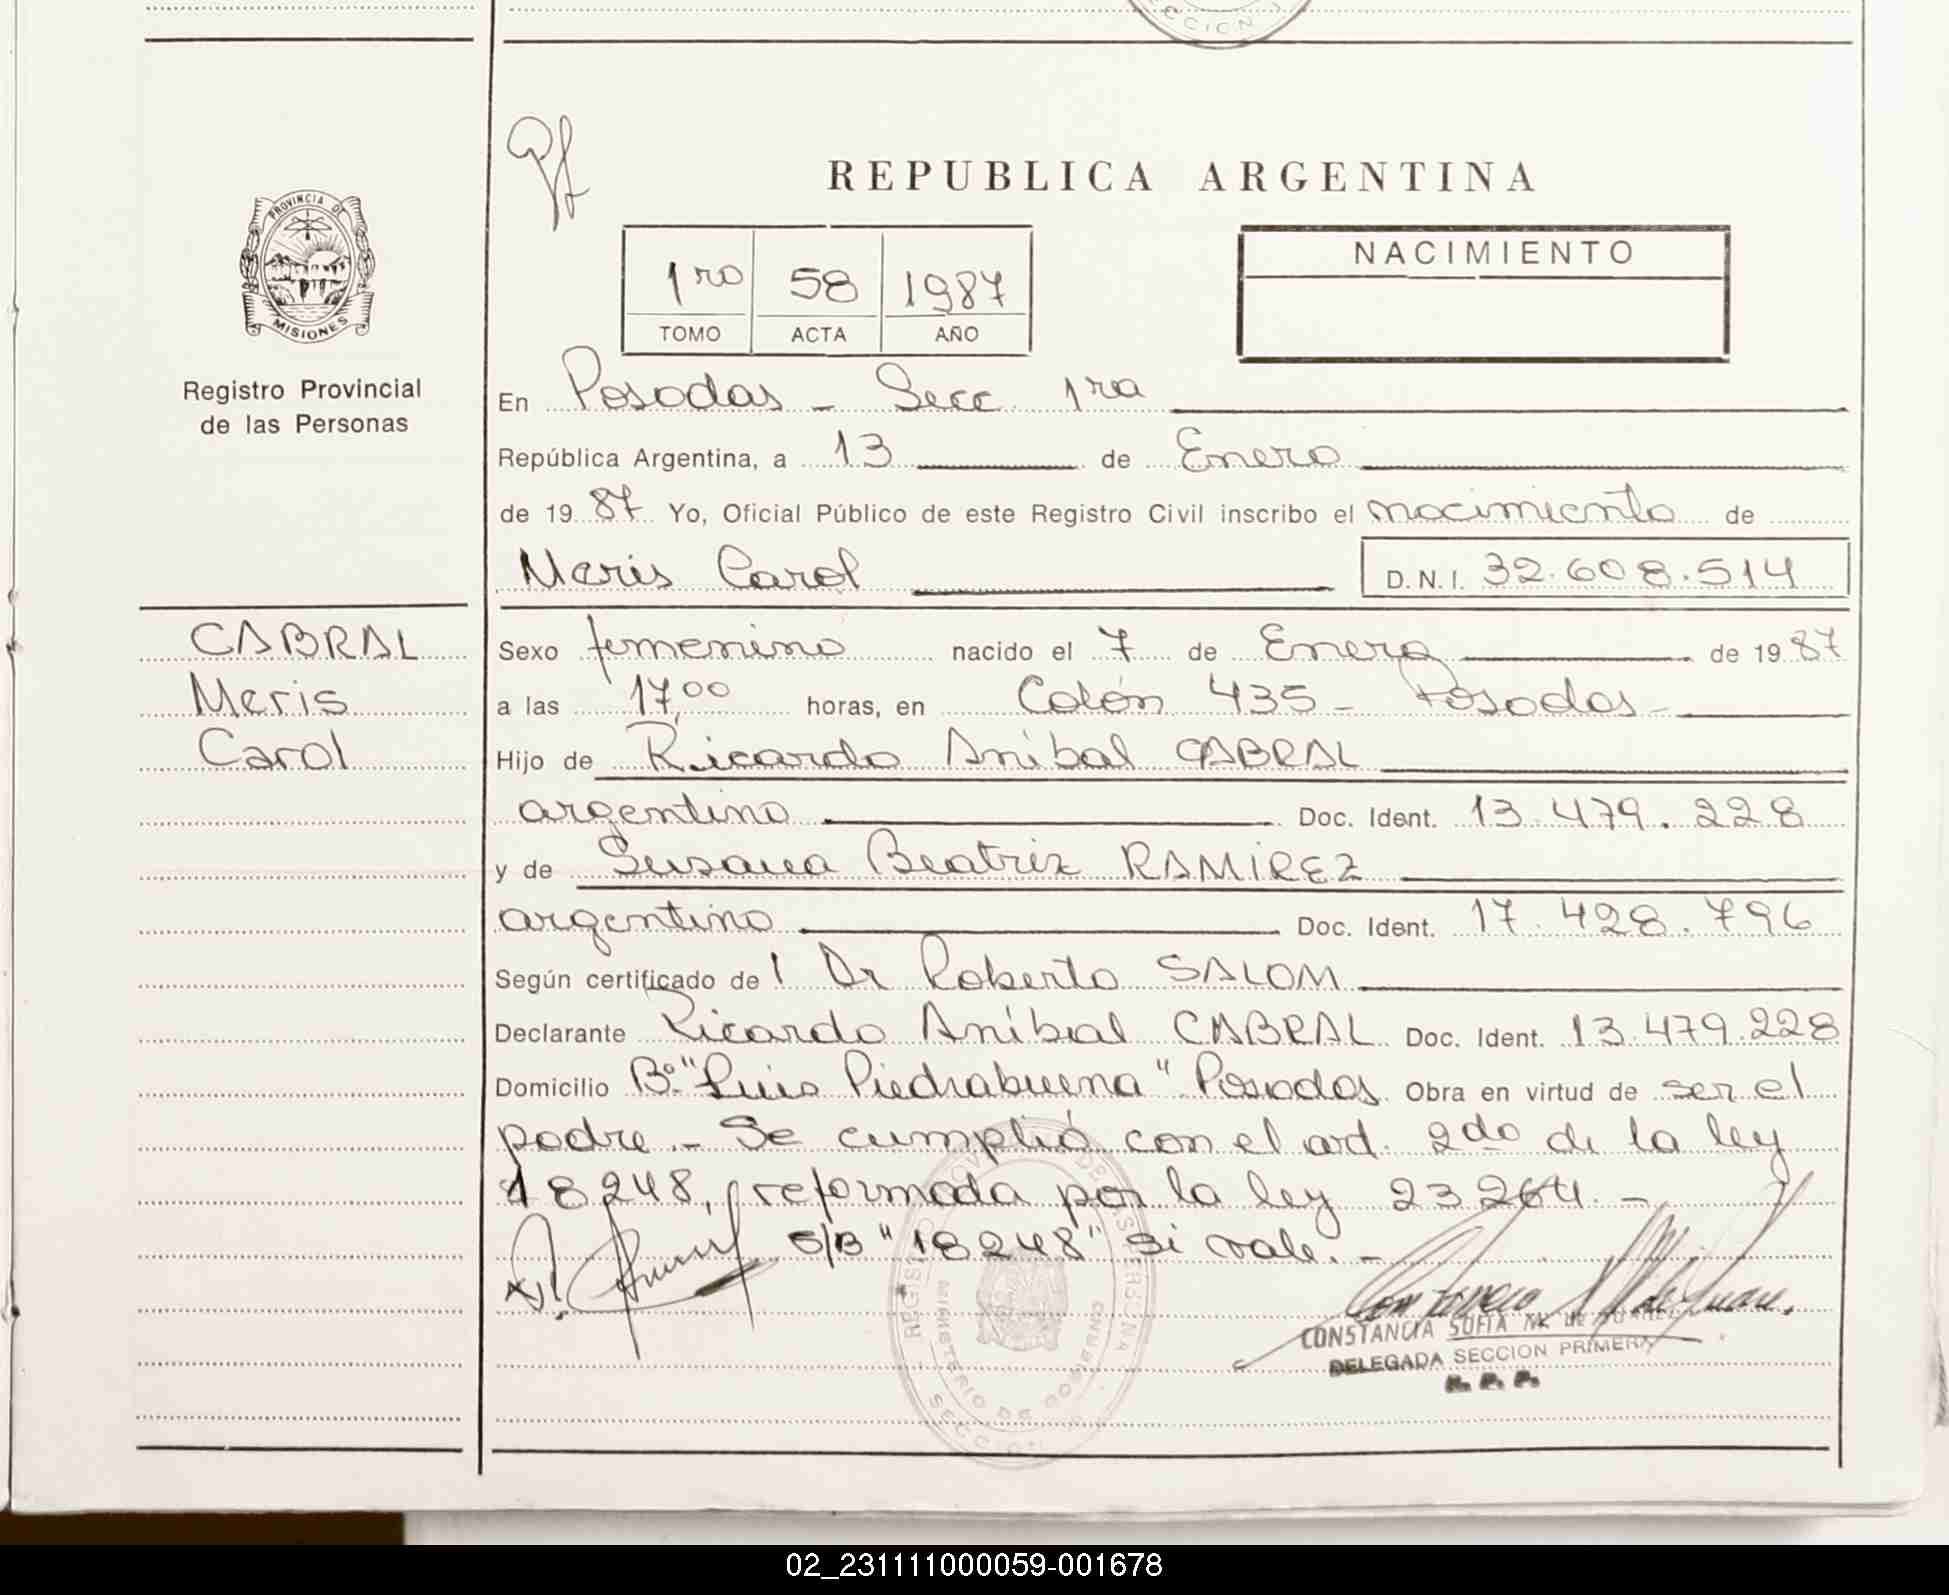 CCION
PROVINCIA DE
MISIONES
Registro Provincial
de las Personas
REPUBLICA ARGENTINA
1ro 58 1987
TOMO ACTA AÑO
NACIMIENTO
En Posadas - Secc 1ra
República Argentina, a 13 de Enero
de 1987 Yo, Oficial Público de este Registro Civil inscribo el nacimiento de
Meris Carol D.N.I. 32.608.514
CABRAL
Meris
Carol
Sexo femenino nacido el 7 de Enero de 1987
a las 17,00 horas, en Colón 435 - Posadas -
Hijo de Ricardo Aníbal CABRAL
argentino Doc. Ident. 13.479.228
y de Susana Beatriz RAMÍREZ
argentina Doc. Ident. 17.428.796
Según certificado de l Dr Roberto SALOM
Declarante Ricardo Aníbal CABRAL Doc. Ident. 13.479.228
Domicilio Bº "Luis Piedrabuena" Posadas Obra en virtud de ser el
padre.- Se cumplió con el art. 2do de la ley
18248, reformada por la ley 23264. -
S/B "18248" si vale. -
CONSTANCIA SOFIA
DELEGADA SECCION PRIMERA
R. P. P.
MINISTERIO DE GOBIERNO
SECCION
02_231111000059-001678